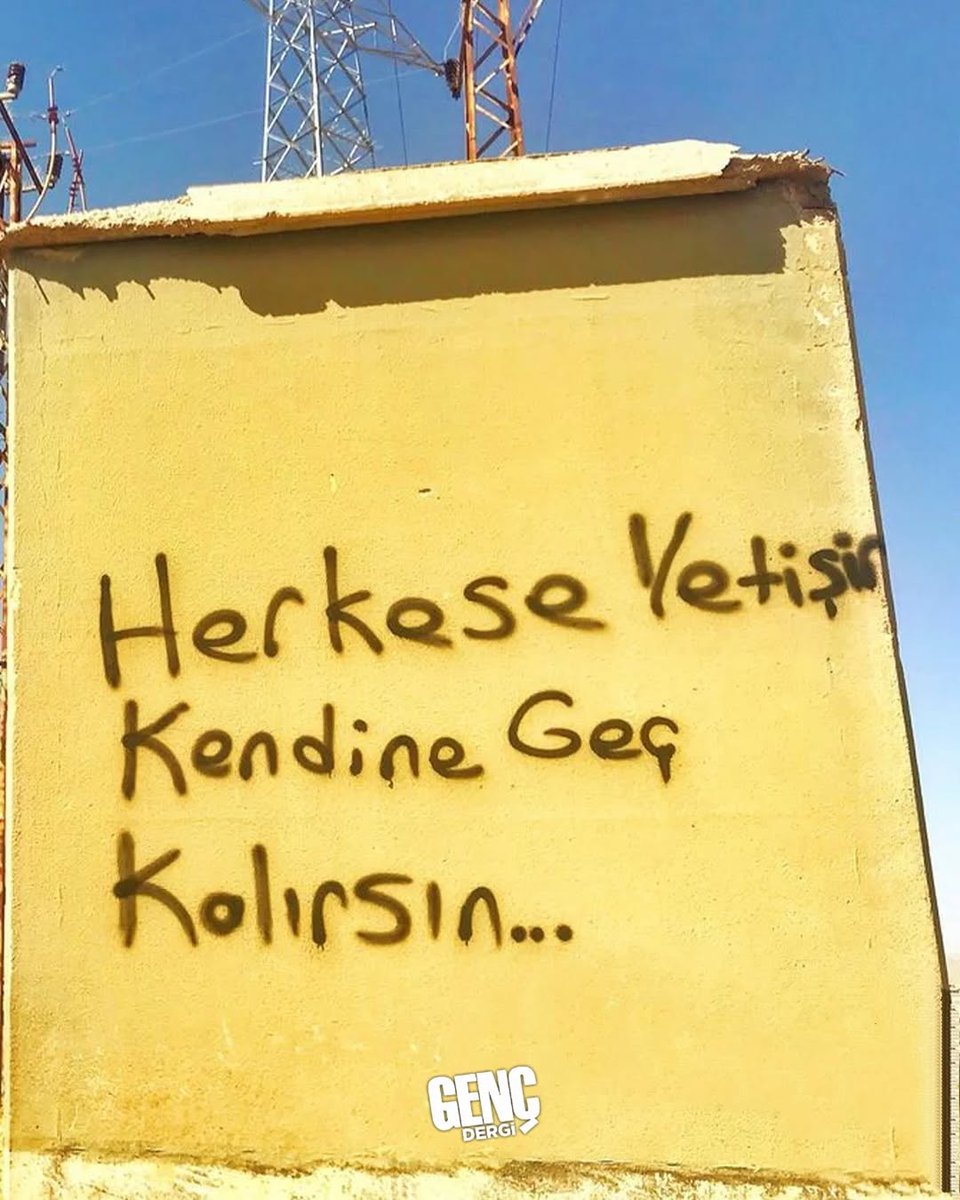 Herkese Yetişir
Kendine Geç
Kalırsın...
GENÇ
DERGİ